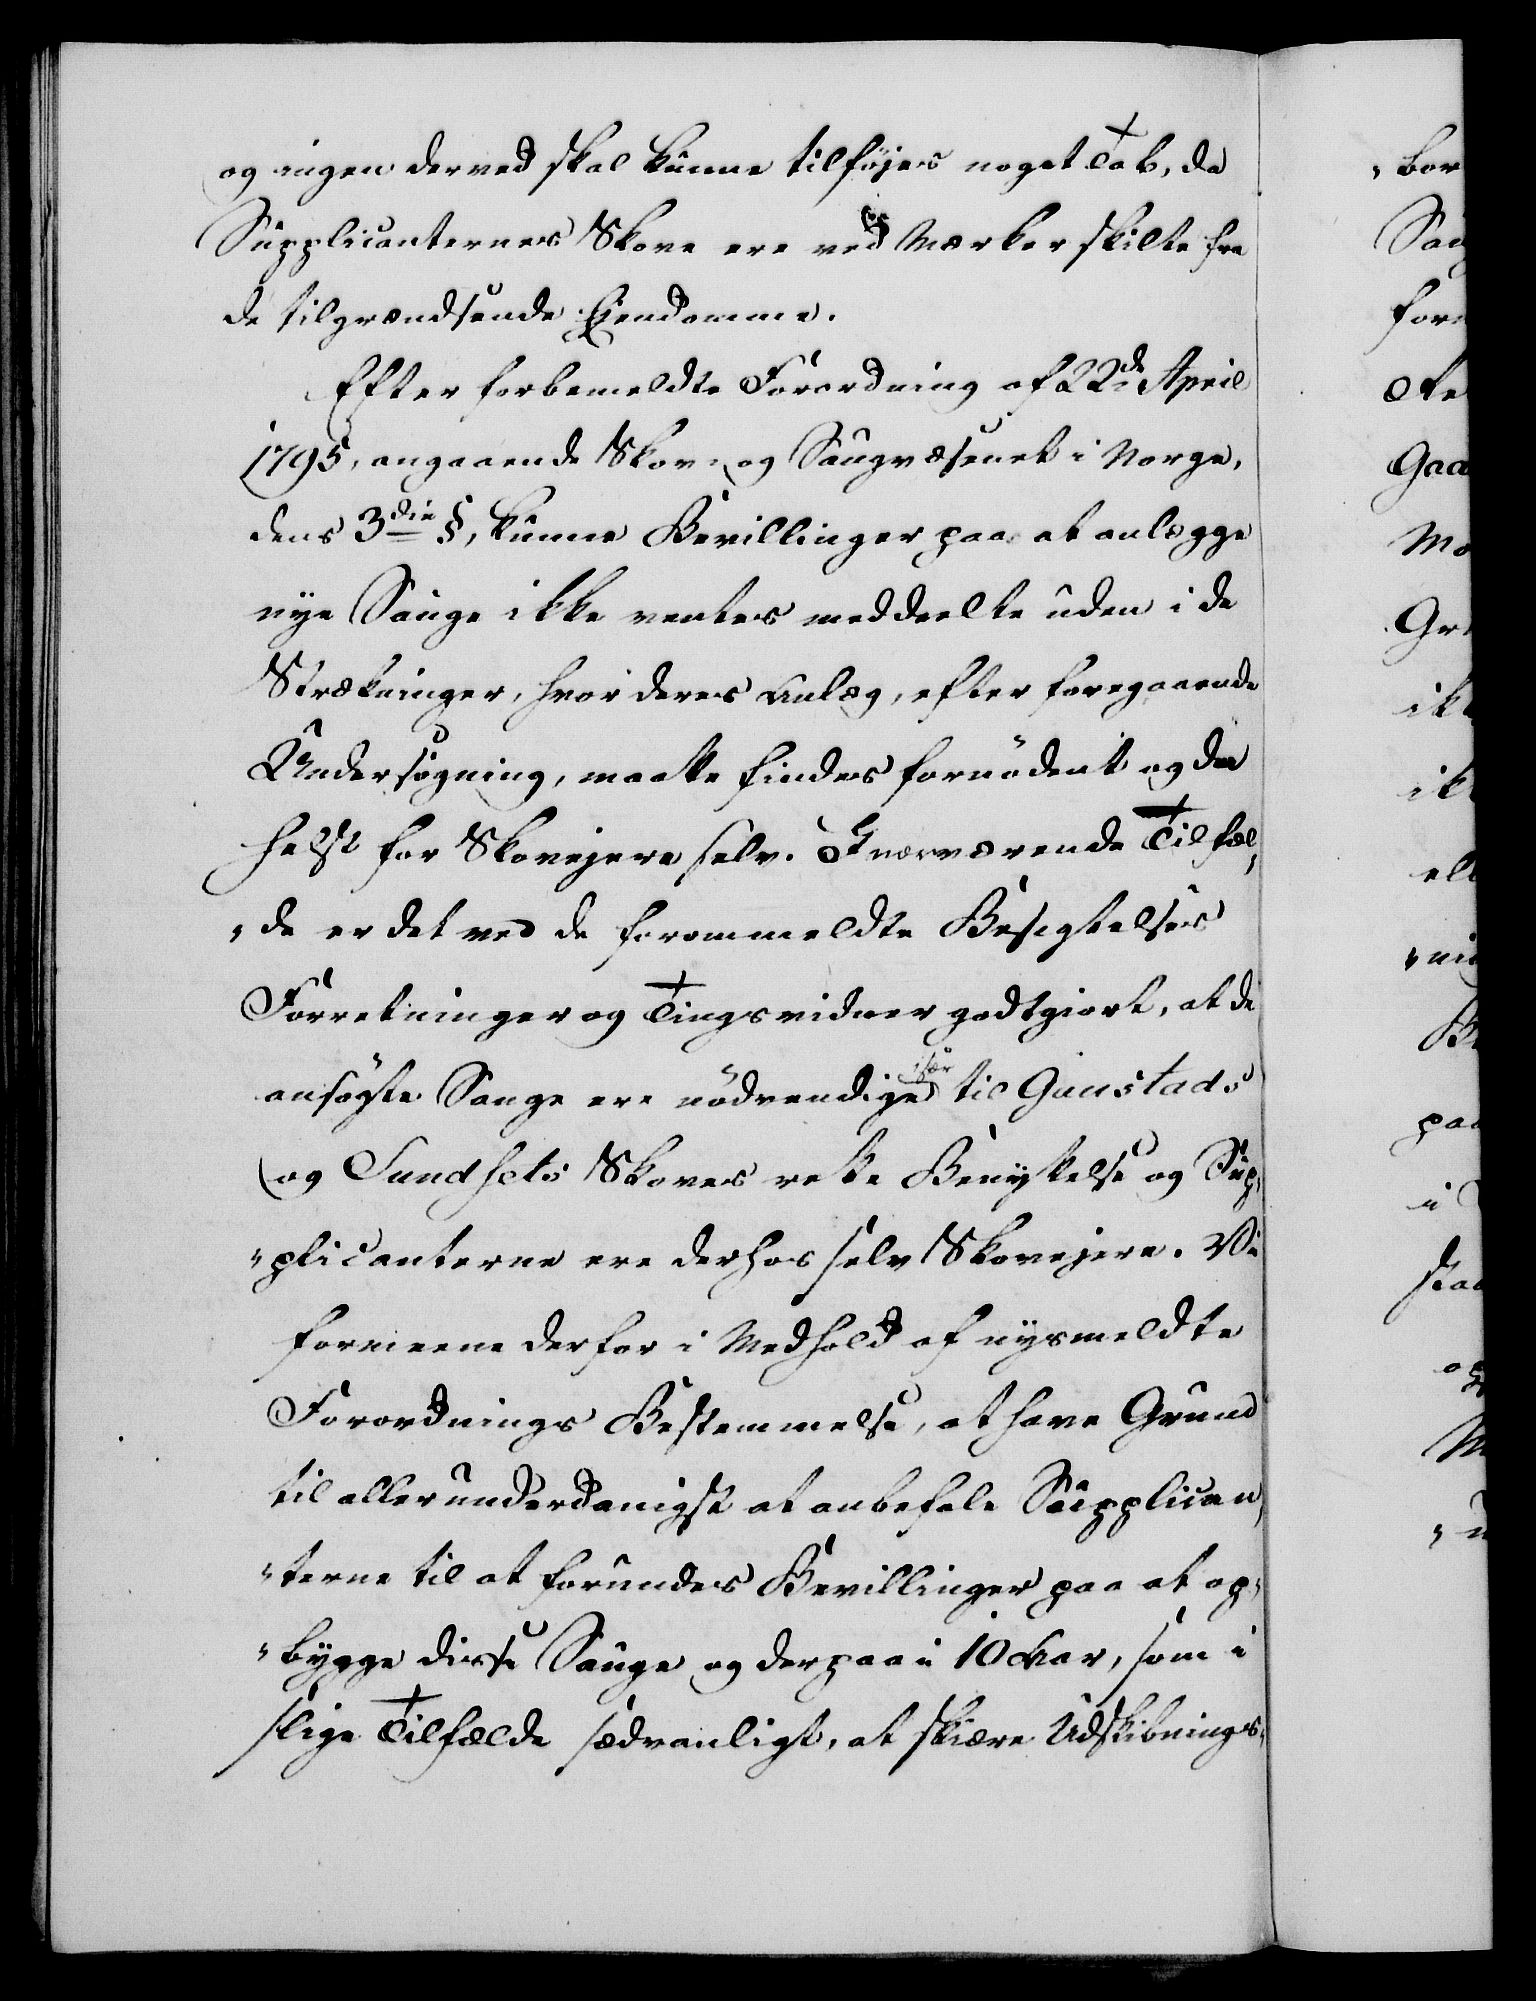 og ingen derved skal kunne tilføjes noget Tab, da
Supplicanternes Skove ere ved Mærker skilte fra
de tilgrændsende Ejendomme.
Efter forbemeldte Forordning af 22de April
1795, angaaende Skov- og Saugvæsenet i Norge,
dens 3die §, kunne Bevillinger paa at anlægge
nye Sauge ikke ventes meddeelte uden i de
Strækninger, hvor deres Anlæg, efter foregaaende
Undersøgning, maatte findes fornødent og da
helst for Skovejere selv. I nærværende Tilfæl-
"de er det ved de forommeldte Besigtelses
Forretninger og Tingsvidner godtgiort, at de
ansøgte Sauge ere nødvendige især til Gunstads
og Sundsets Skoves rette Benyttelse og Sup-
"plicanterne ere derhos selv Skovejere. Vi
formeene derfor i Medhold af nysmeldte
Forordnings Bestemmelse, at have Grund
til allerunderdanigst at anbefale Supplican-
"terne til at forundes Bevillinger paa at op-
"bygge disse Sauge og derpaa i 10 Aar, som i
slige Tilfælde sædvanligt, at skiære Udskibnings-